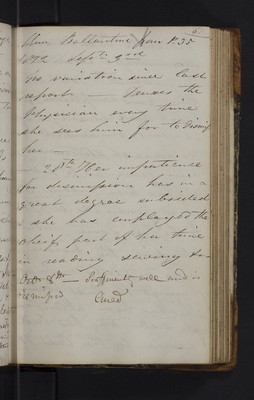 Ann Ballantine from P. 35
1842 Septr. 9th
No variation since last
report — Teases the
Physician every time
she sees him for to dismiss
her —
— 28th Her impatience
for dismission has in a
great degree subsided
& she has employed the
chief part of her time
in reading sewing &c
Octr 8th — Sufficiently well and is
dismissed Cured